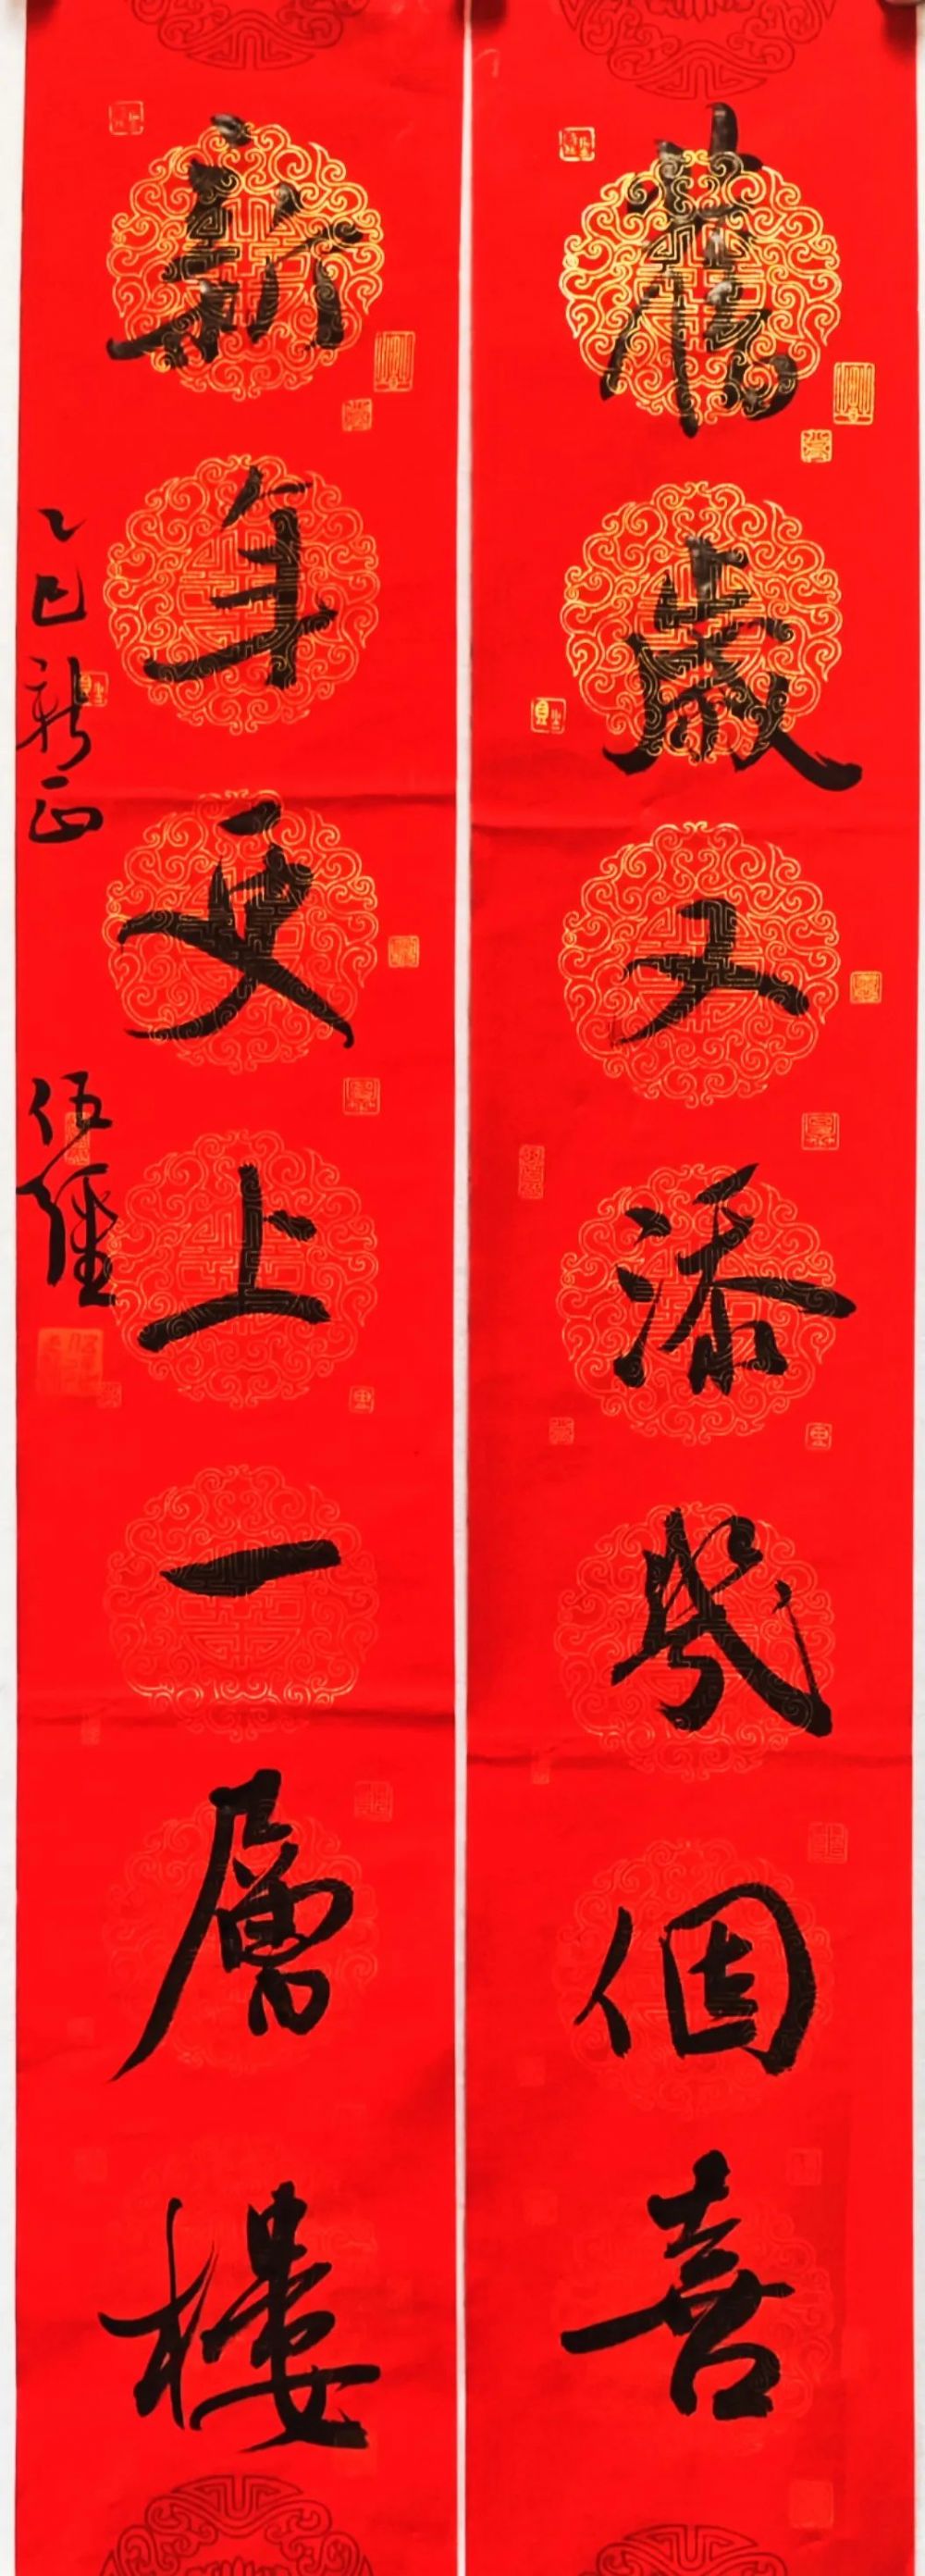 舊歲又添幾個喜
新年更上一層樓
乙巳新正
伍